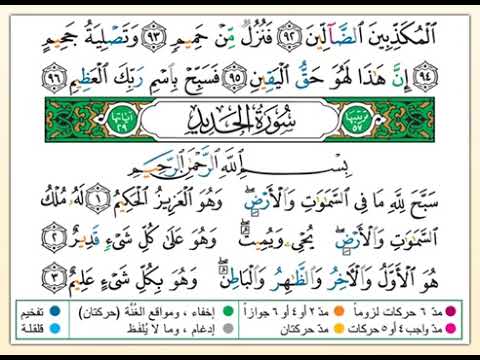 ٱلْمُكَذِّبِينَ ٱلضَّآلِّينَ ٩٢ فَنُزُلٌ مِّنْ حَمِيمٍ ٩٣ وَتَصْلِيَةُ جَحِيمٍ
٩٤ إِنَّ هَٰذَا لَهُوَ حَقُّ ٱلْيَقِينِ ٩٥ فَسَبِّحْ بِٱسْمِ رَبِّكَ ٱلْعَظِيمِ ٩٦
ترتيبها ٥٧ سُورَةُ الحَدِيدِ آياتها ٢٩
بِسْمِ ٱللَّهِ ٱلرَّحْمَٰنِ ٱلرَّحِيمِ
سَبَّحَ لِلَّهِ مَا فِى ٱلسَّمَٰوَٰتِ وَٱلْأَرْضِ ۖ وَهُوَ ٱلْعَزِيزُ ٱلْحَكِيمُ ١ لَهُۥ مُلْكُ
ٱلسَّمَٰوَٰتِ وَٱلْأَرْضِ ۖ يُحْىِۦ وَيُمِيتُ ۖ وَهُوَ عَلَىٰ كُلِّ شَىْءٍ قَدِيرٌ ٢
هُوَ ٱلْأَوَّلُ وَٱلْءَاخِرُ وَٱلظَّٰهِرُ وَٱلْبَاطِنُ ۖ وَهُوَ بِكُلِّ شَىْءٍ عَلِيمٌ ٣
مدّ ٦ حركات لزوماً مدّ ٢ أو ٤ أو ٦ جوازاً إخفاء، ومواقع الغُنَّة (حركتان) تفخيم
مدّ واجب ٤ أو ٥ حركات مدّ حركتان إدغام، وما لا يُلفظ قلقلة